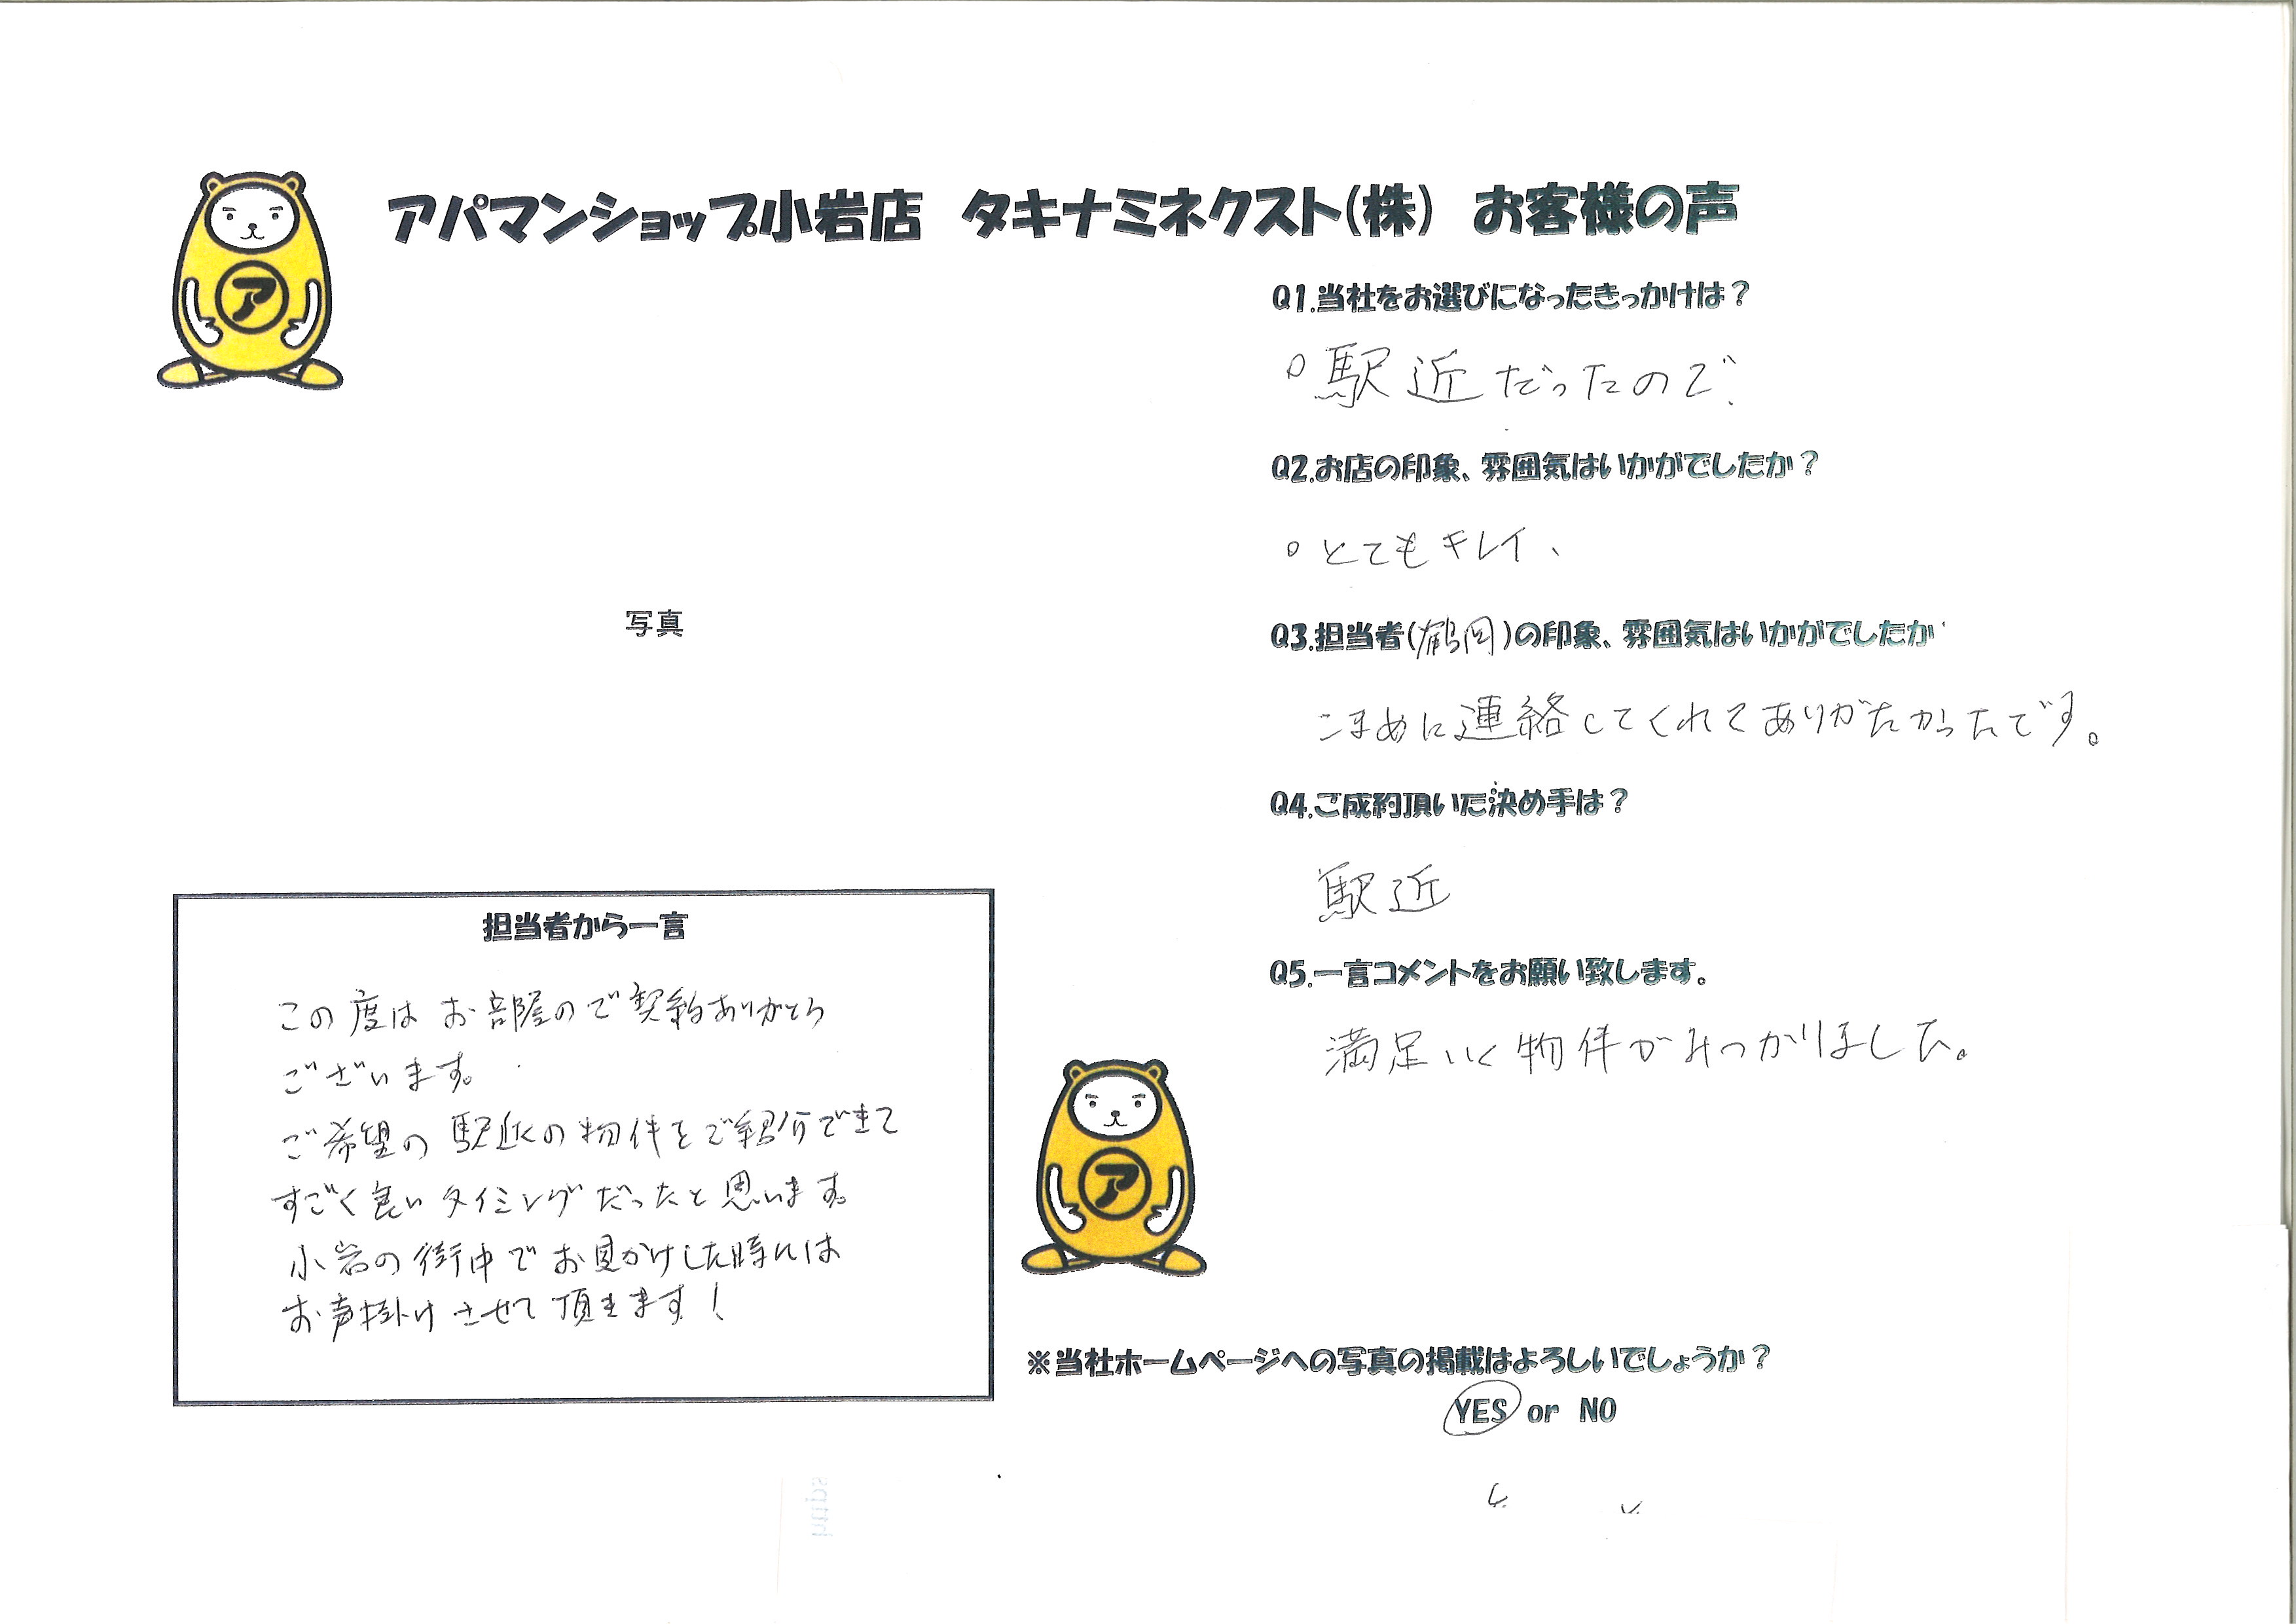 アパマンショップ小岩店 タキナミネクスト(株) お客様の声
ア
Q1.当社をお選びになったきっかけは?
○駅近だったので、
Q2.お店の印象、雰囲気はいかがでしたか?
○とてもキレイ、
写真
Q3.担当者(鶴岡)の印象、雰囲気はいかがでしたか
こまめに連絡してくれてありがたかったです。
Q4.ご成約頂いた決め手は?
駅近
Q5.一言コメントをお願い致します。
満足いく物件がみつかりました。
担当者から一言
この度はお部屋のご契約ありがとう
ございます。
ご希望の駅近の物件をご紹介できて
すごく良いタイミングだったと思います。
小岩の街中でお見かけした時には
お声掛けさせて頂きます!
ア
※当社ホームページへの写真の掲載はよろしいでしょうか?
YES or NO